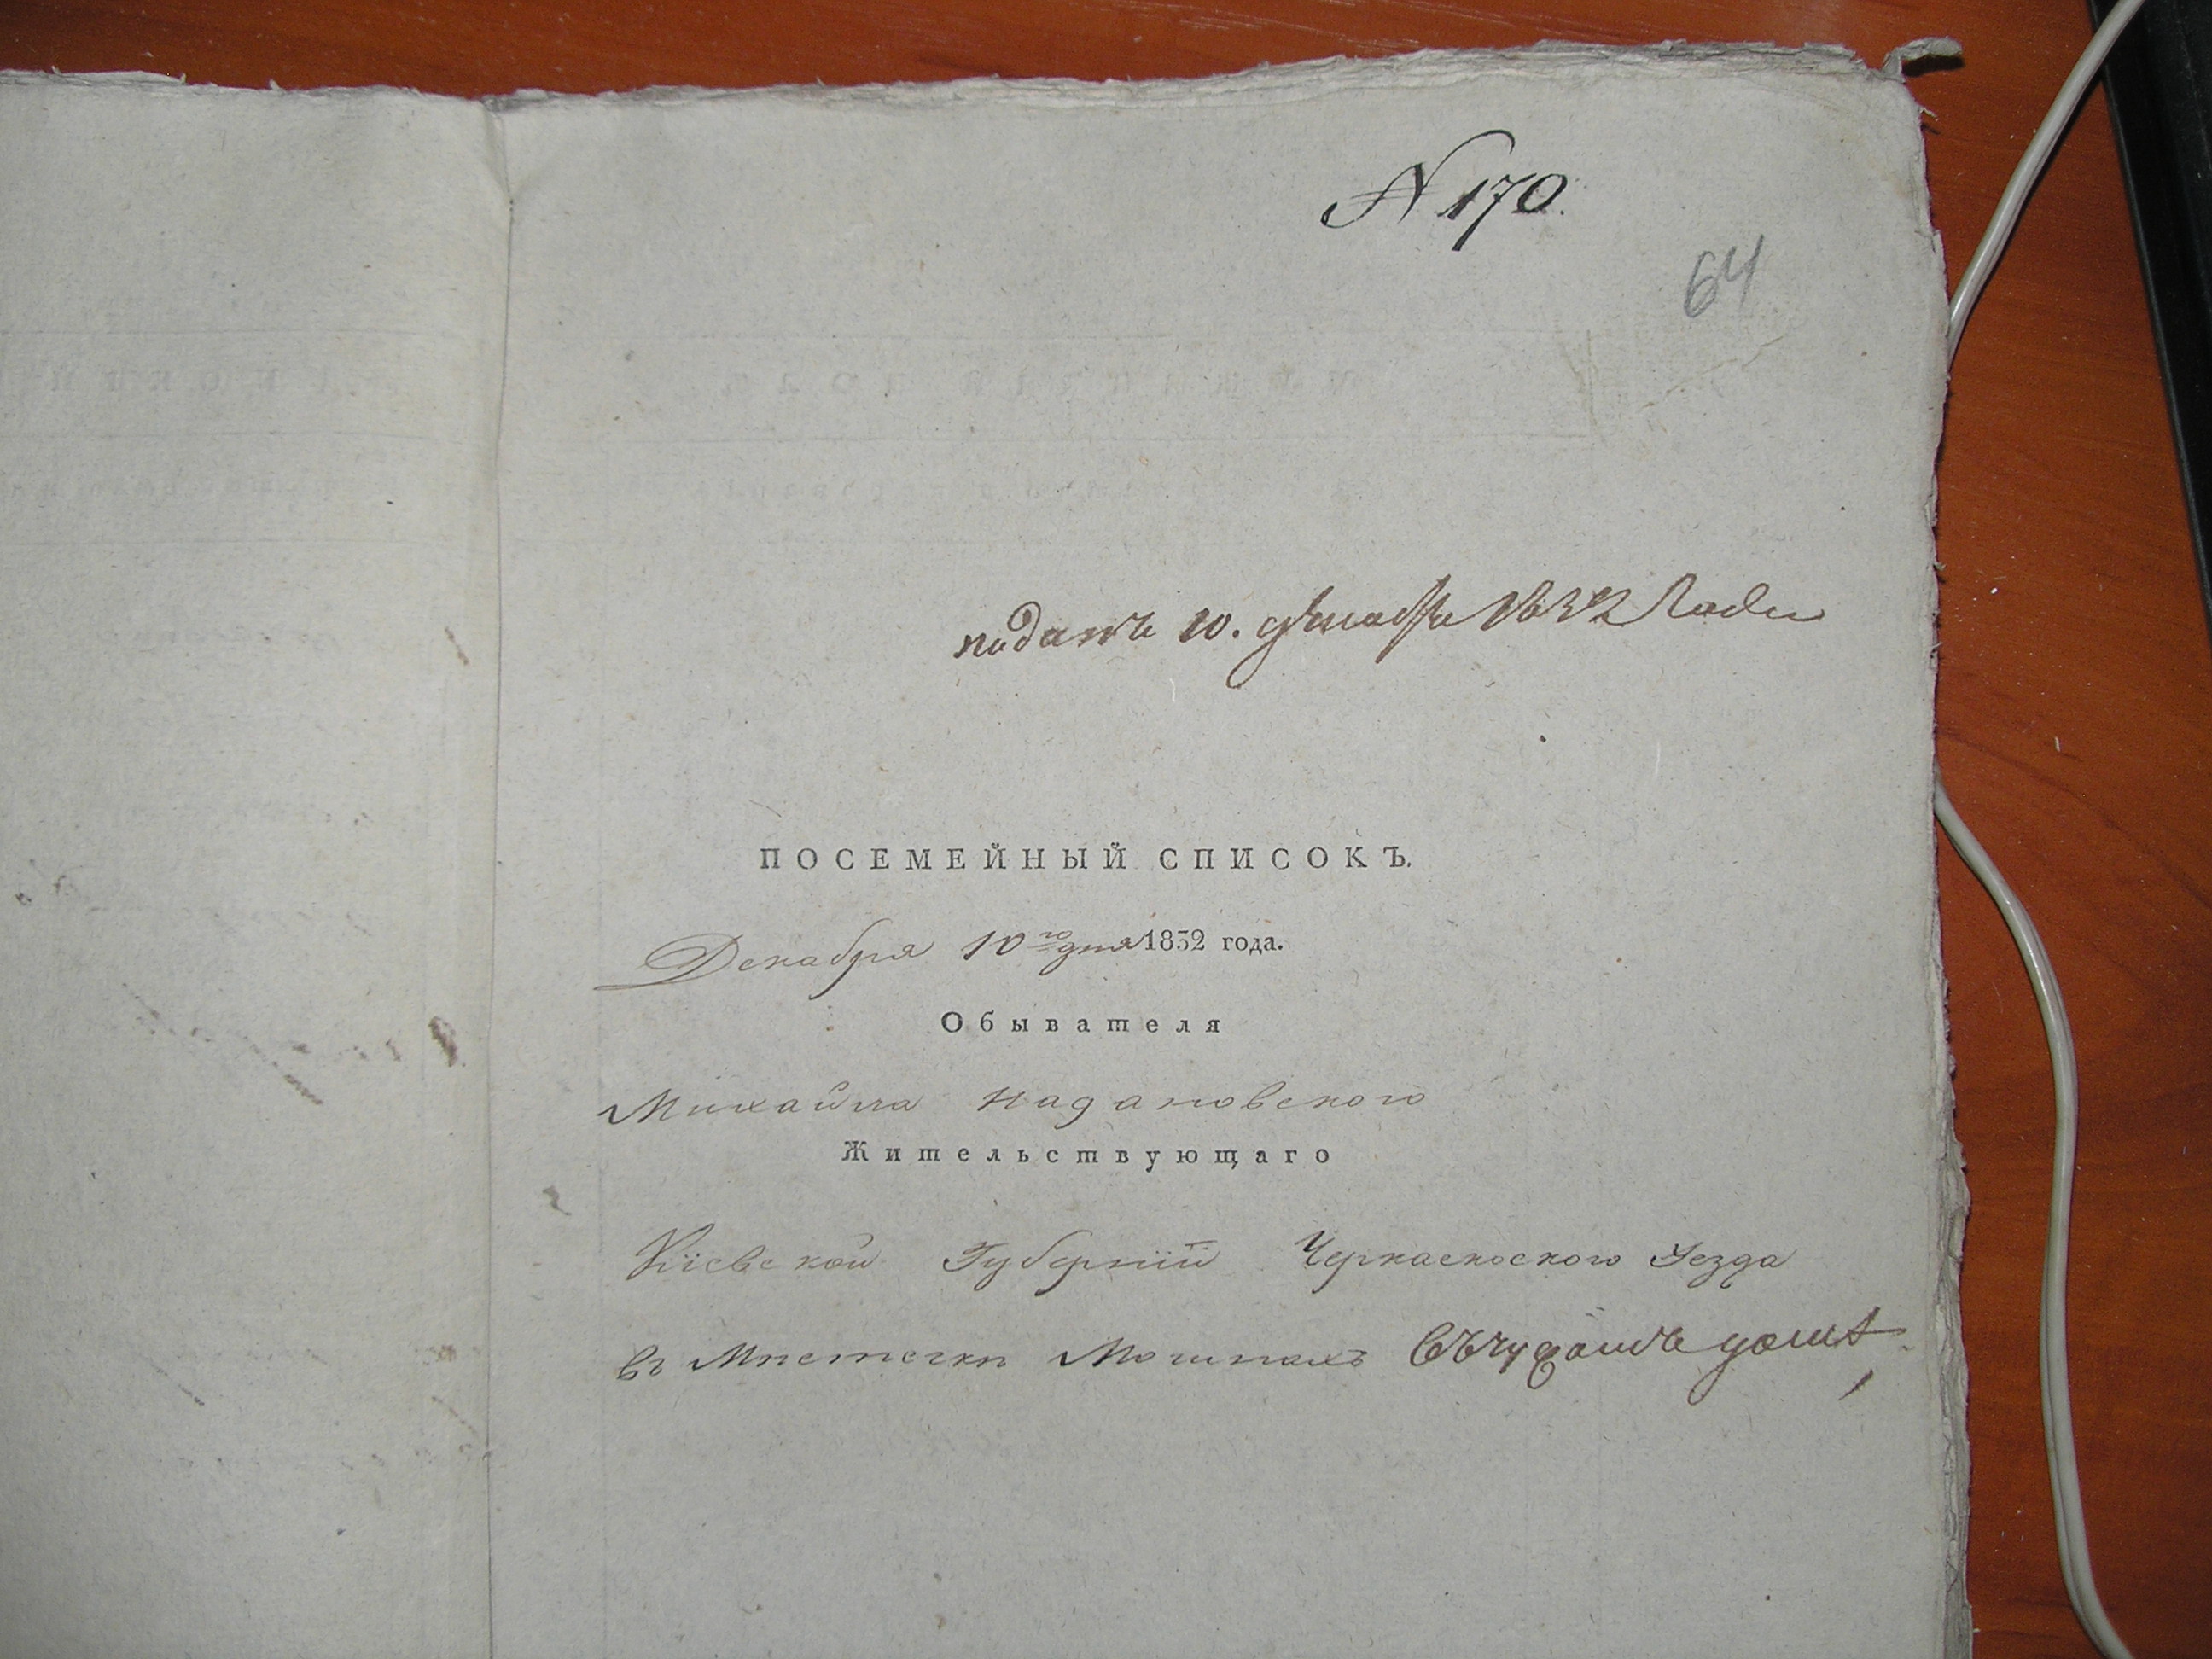 N 170.
64
поданъ 10. декабря 1832 года
ПОСЕМЕЙНЫЙ СПИСОКЪ.
Декабря 10го дня 1832 года.
Обывателя
Михайла Надановского
Жительствующаго
Кіевской Губерніи Черкаского Уезда
въ Мпстечкп Мошнахъ въ чужомъ доме